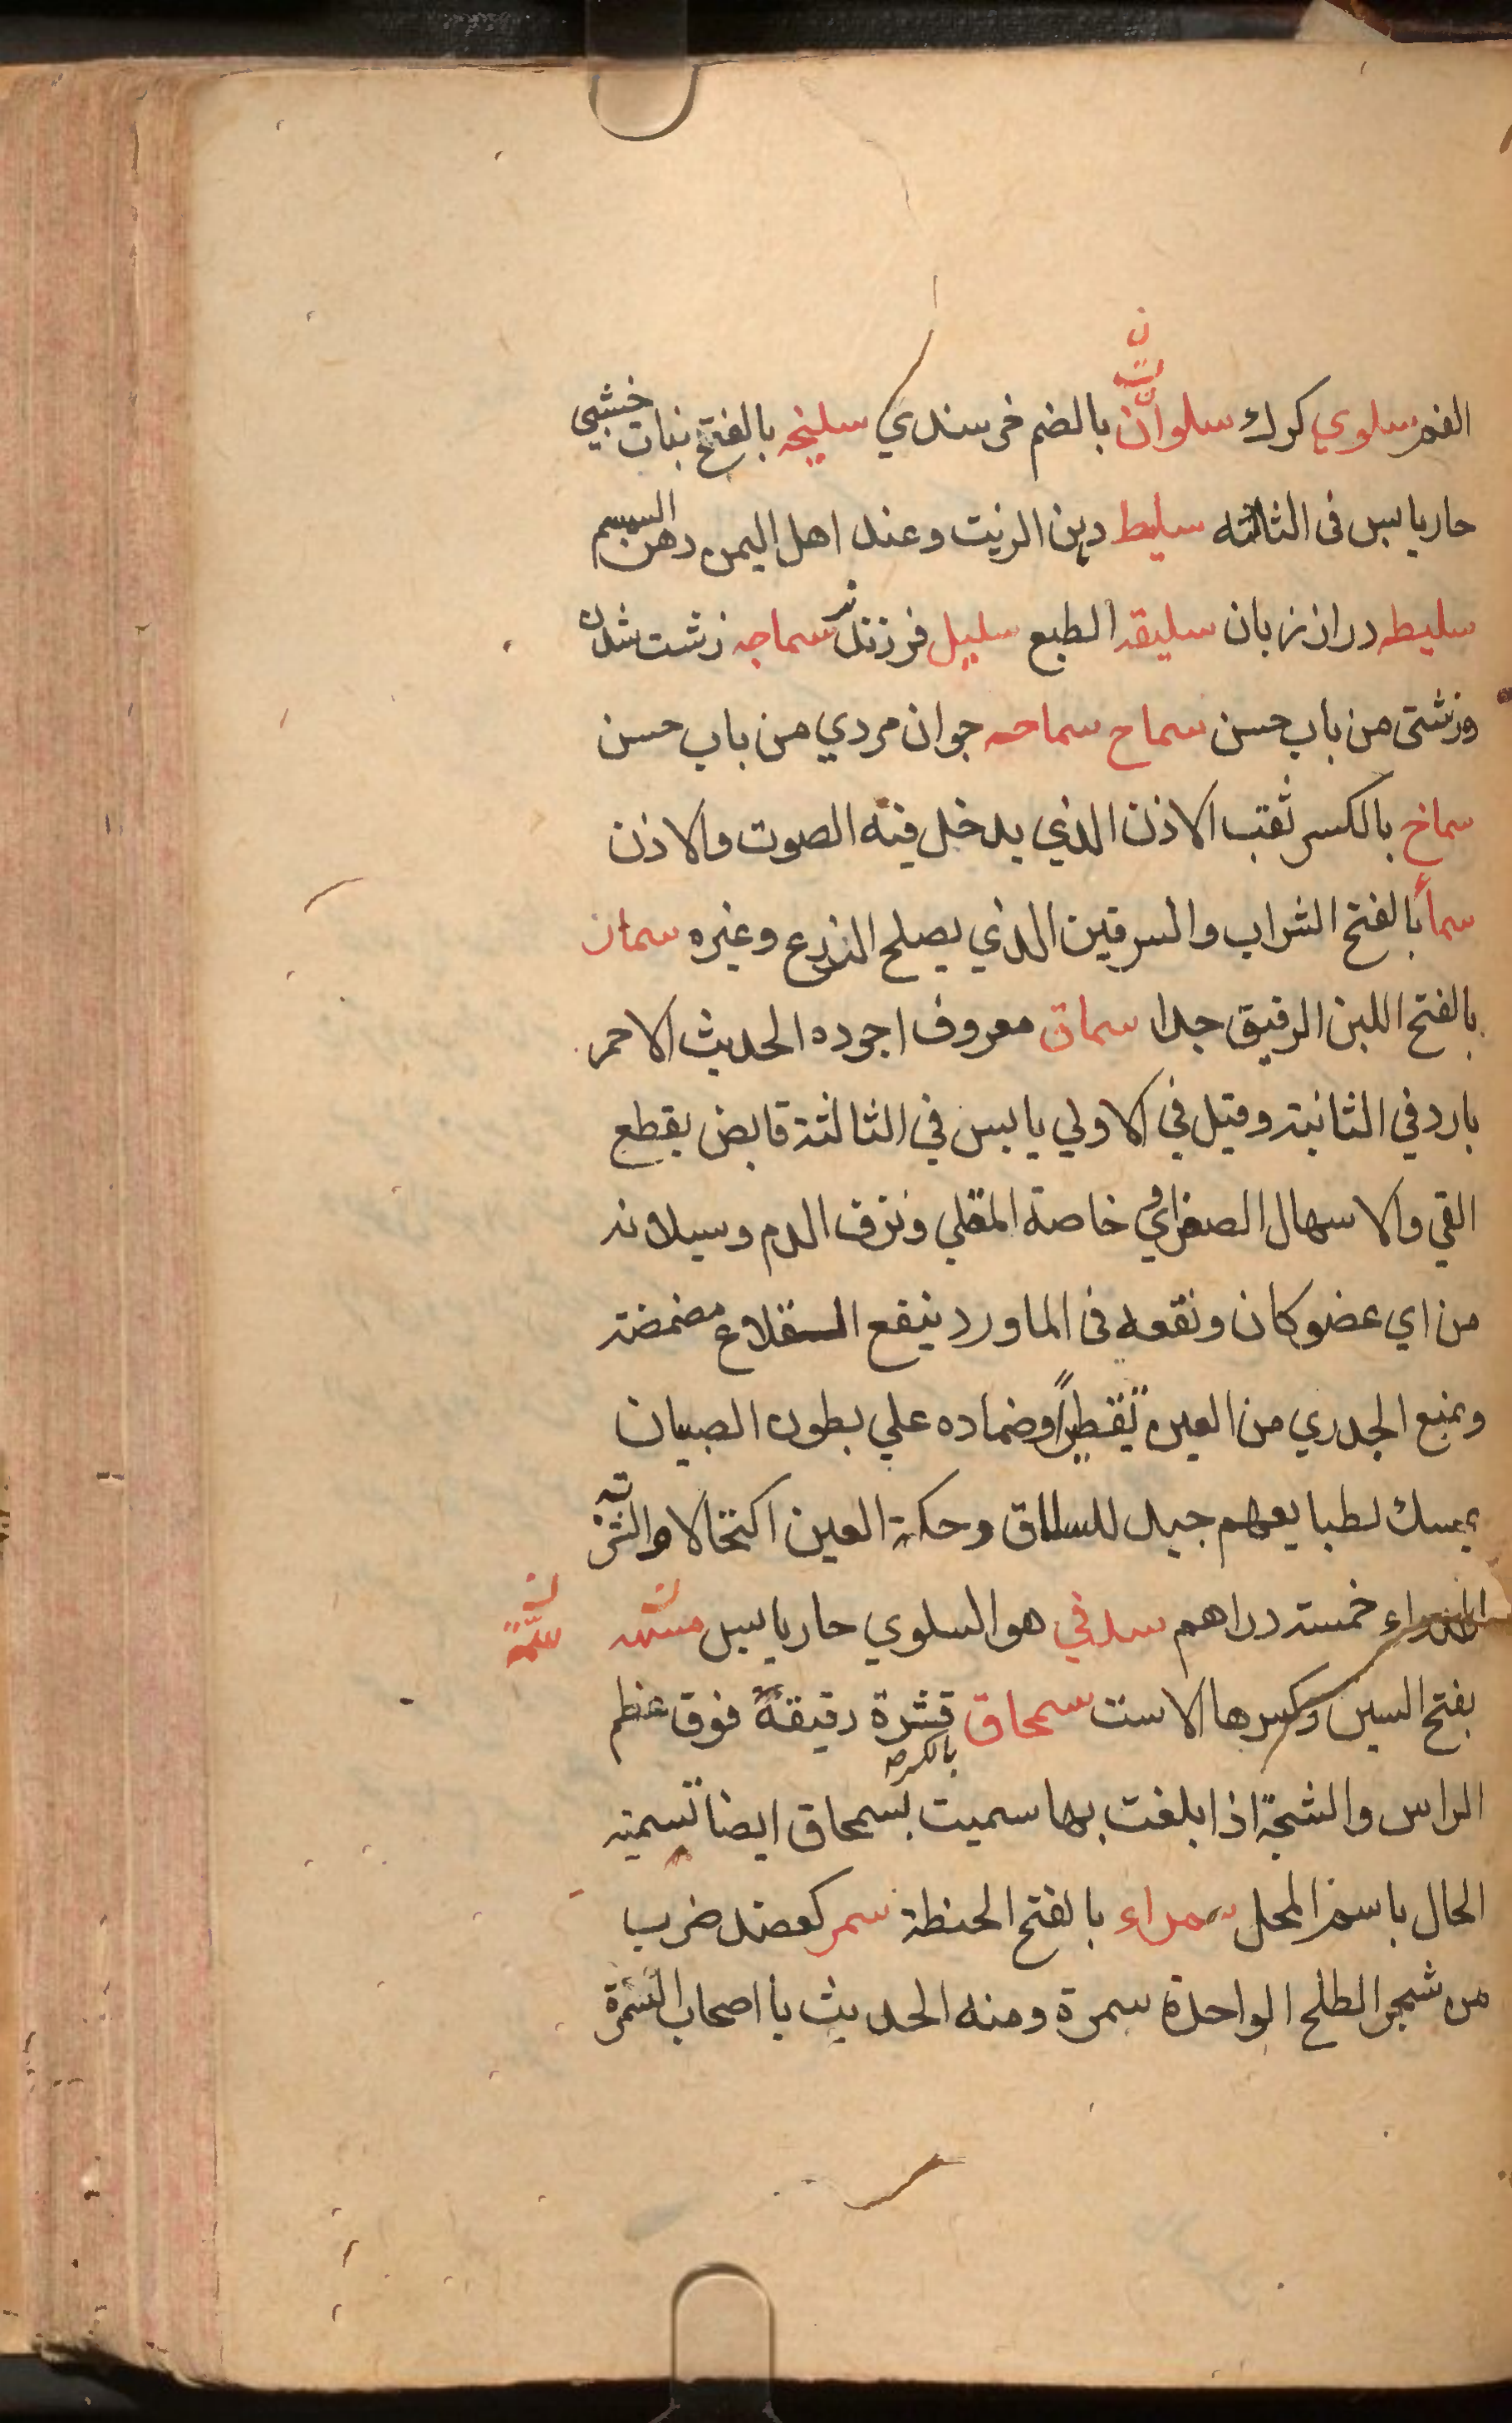 الفم سلوي كرك سلوان بالضم خرسندي سليخه بالفتح نبات خشبي
حار يابس فى الثالثه سليط دهن الزيت وعند اهل اليمن دهن السمسم
سليطه دراز زبان سليقه الطبع سليل فرزند نر سماجه زشت شدن
وزشتى من باب حسن سماح سماحه جوان مردي من باب حسن
سماخ بالكسر ثقب الاذن الذي يدخل فيه الصوت والاذن
سماأ بالفتح الشراب والسرقين الذي يصلح الزرع وغيره سمان
بالفتح اللبن الرقيق جدا سماق معروف اجوده الحديث الاحمر
بارد في الثانية وقيل في الاولي يابس في الثالثة قابض يقطع
القي والاسهال الصفراوي خاصة المقلي ونزف الدم وسيلانه
من اي عضو كان ونقعه فى الماورد ينفع القلاع مضمضه
ويمنع الجدري من العين تقطيرا وضماده علي بطون الصبيان
يمسك لطبايعهم جيد للسلاق وحكة العين اكتحالا والشربة
خمسة دراهم هو السلوي حار يابس سته
بفتح السين وكسرها الاست سمحاق قشرة رقيقة فوق عظم
بالكسر
الراس والشجة اذا بلغت بها سميت بسمحاق ايضا تسمية
الحال باسم المحل سمراء بالفتح الحنطة سمر كعضد ضرب
من شجر الطلح الواحدة سمرة ومنه الحديث يا اصحاب السمرة